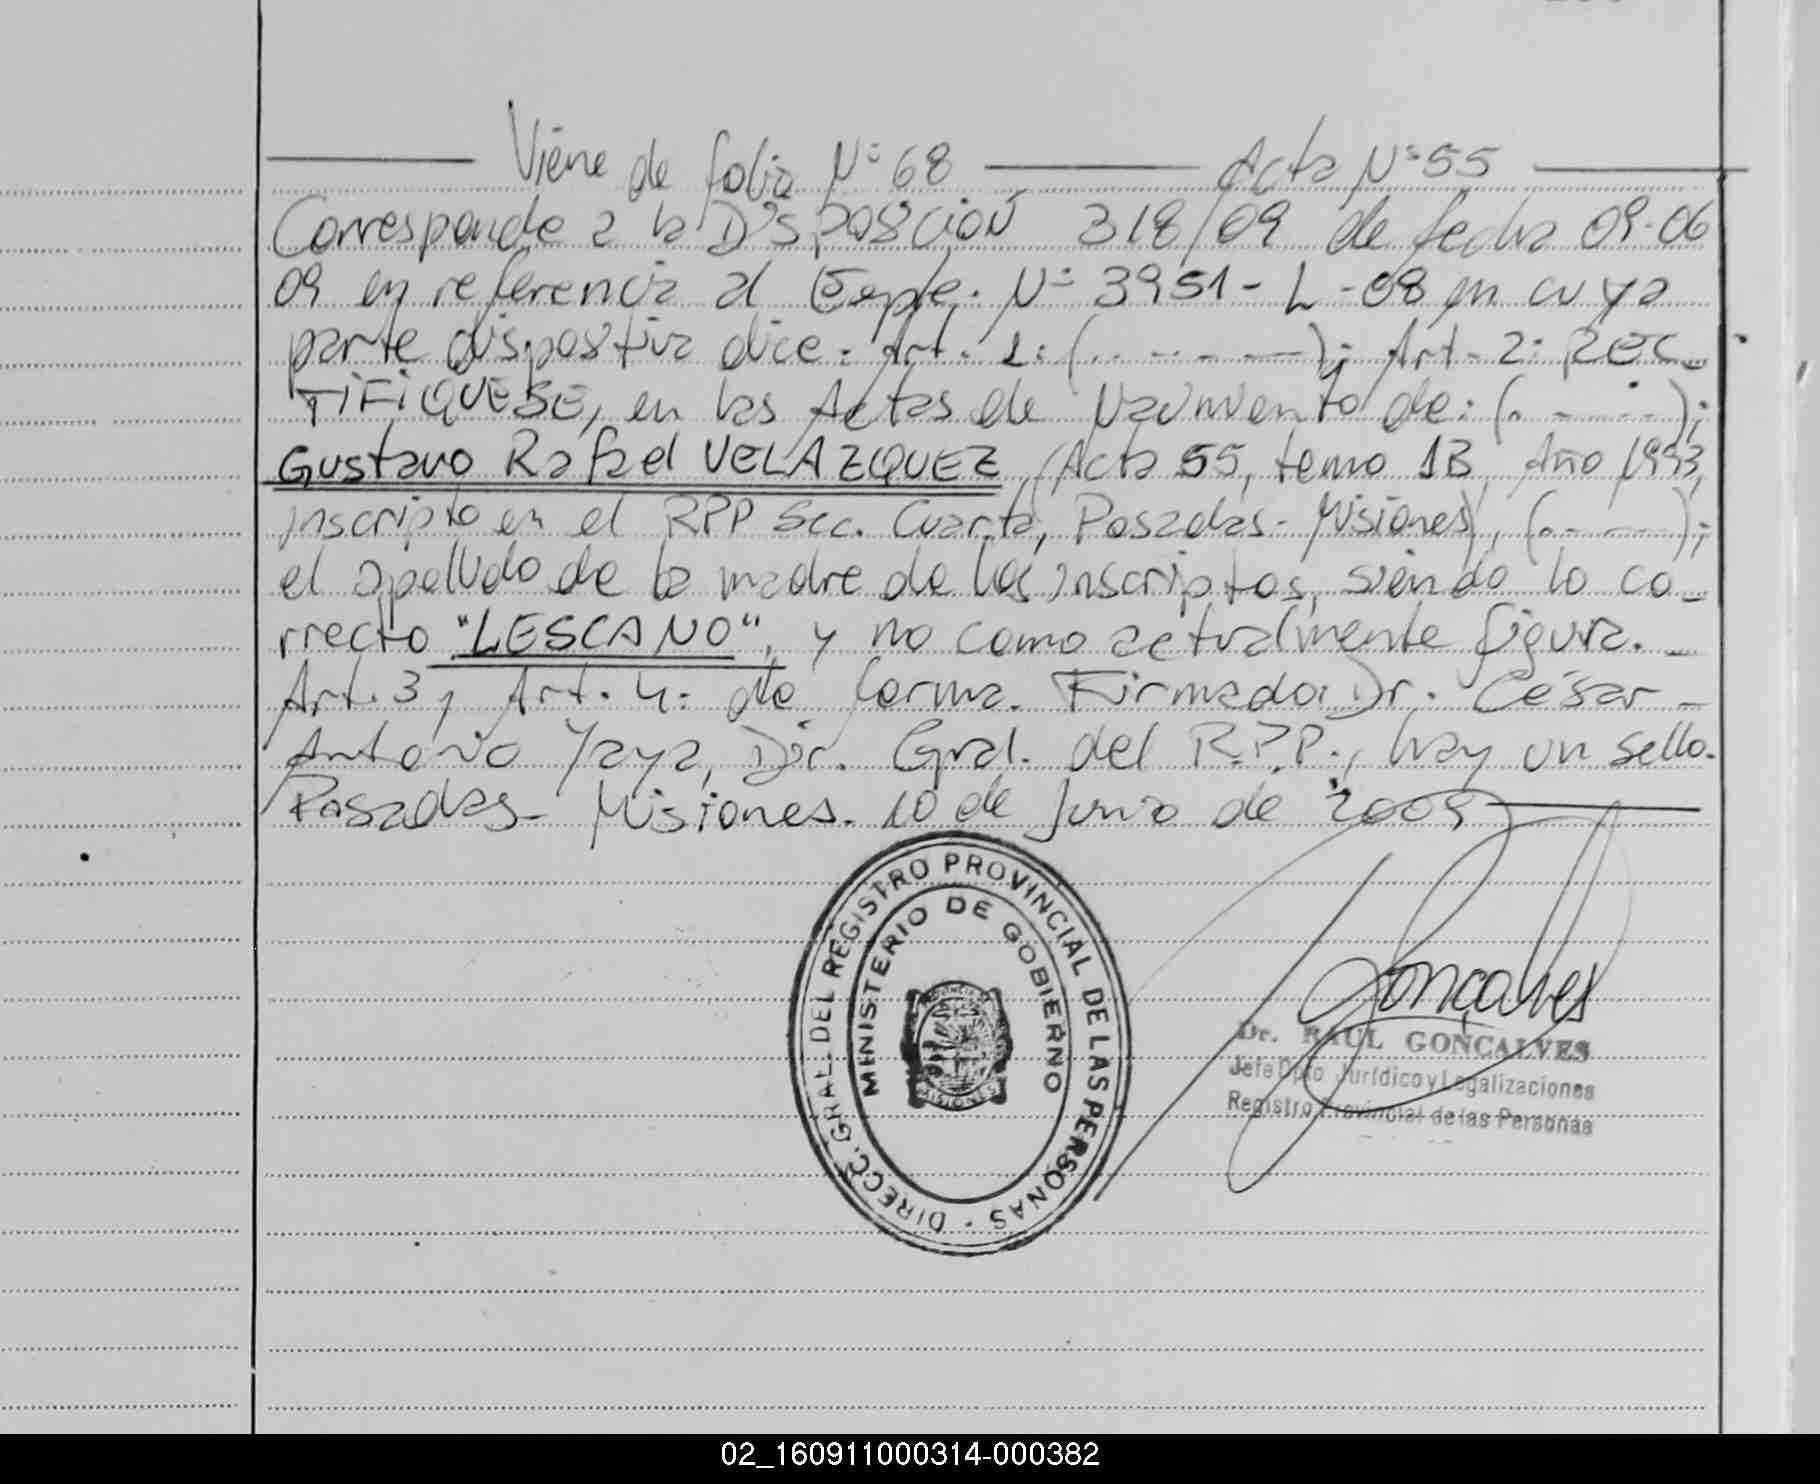 Viene de folio Nº 68 Acta Nº 55
Corresponde a la DISPOSICIÓN 318/09 de fecha 09-06
09 en referencia al Expte. Nº 3951-L-08 en cuya
parte dispositiva dice: Art. 1: (.. - - - —); Art. 2: REC_
TIFIQUESE, en las Actas de Nacimiento de: (. - - - -);
Gustavo Rafael VELAZQUEZ (Acta 55, tomo 1B, Año 1993,
inscripto en el RPP Scc. Cuarta, Posadas- Misiones), (. - - —);
el apellido de la madre de los inscriptos, siendo lo co_
rrecto "LESCANO", y no como actualmente figura. _
Art. 3, Art. 4: de forma. Firmado: Dr. César _
Antonio Yaya, Dir. Gral. del R.P.P., hay un sello.
Posadas- Misiones. 10 de Junio de 2009
DIRECC. GRAL. DEL REGISTRO PROVINCIAL DE LAS PERSONAS -
MINISTERIO DE GOBIERNO
PROVINCIA DE
MISIONES
Gonçalves
Dr. RAUL GONÇALVES
Jefe Dpto Jurídico y Legalizaciones
Registro Provincial de las Personas
02_160911000314-000382